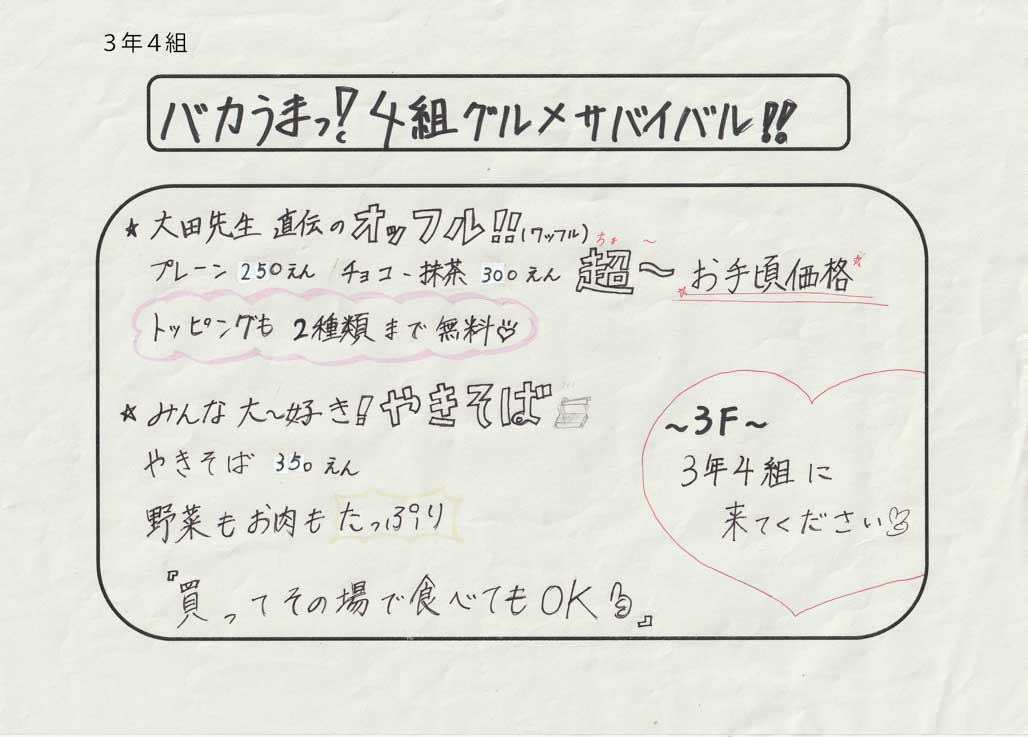 3年4組
バカうまっ!? 4組グルメサバイバル!!
★大田先生 直伝のオッフル!!(ワッフル)
プレーン 250えん チョコ・抹茶 300えん 超〜お手頃価格
ちょ〜
トッピングも 2種類まで無料
★みんな大〜好き!やきそば
やきそば 350えん
野菜もお肉もたっぷり
『買ってその場で食べてもOK』
〜3F〜
3年4組に
来てください